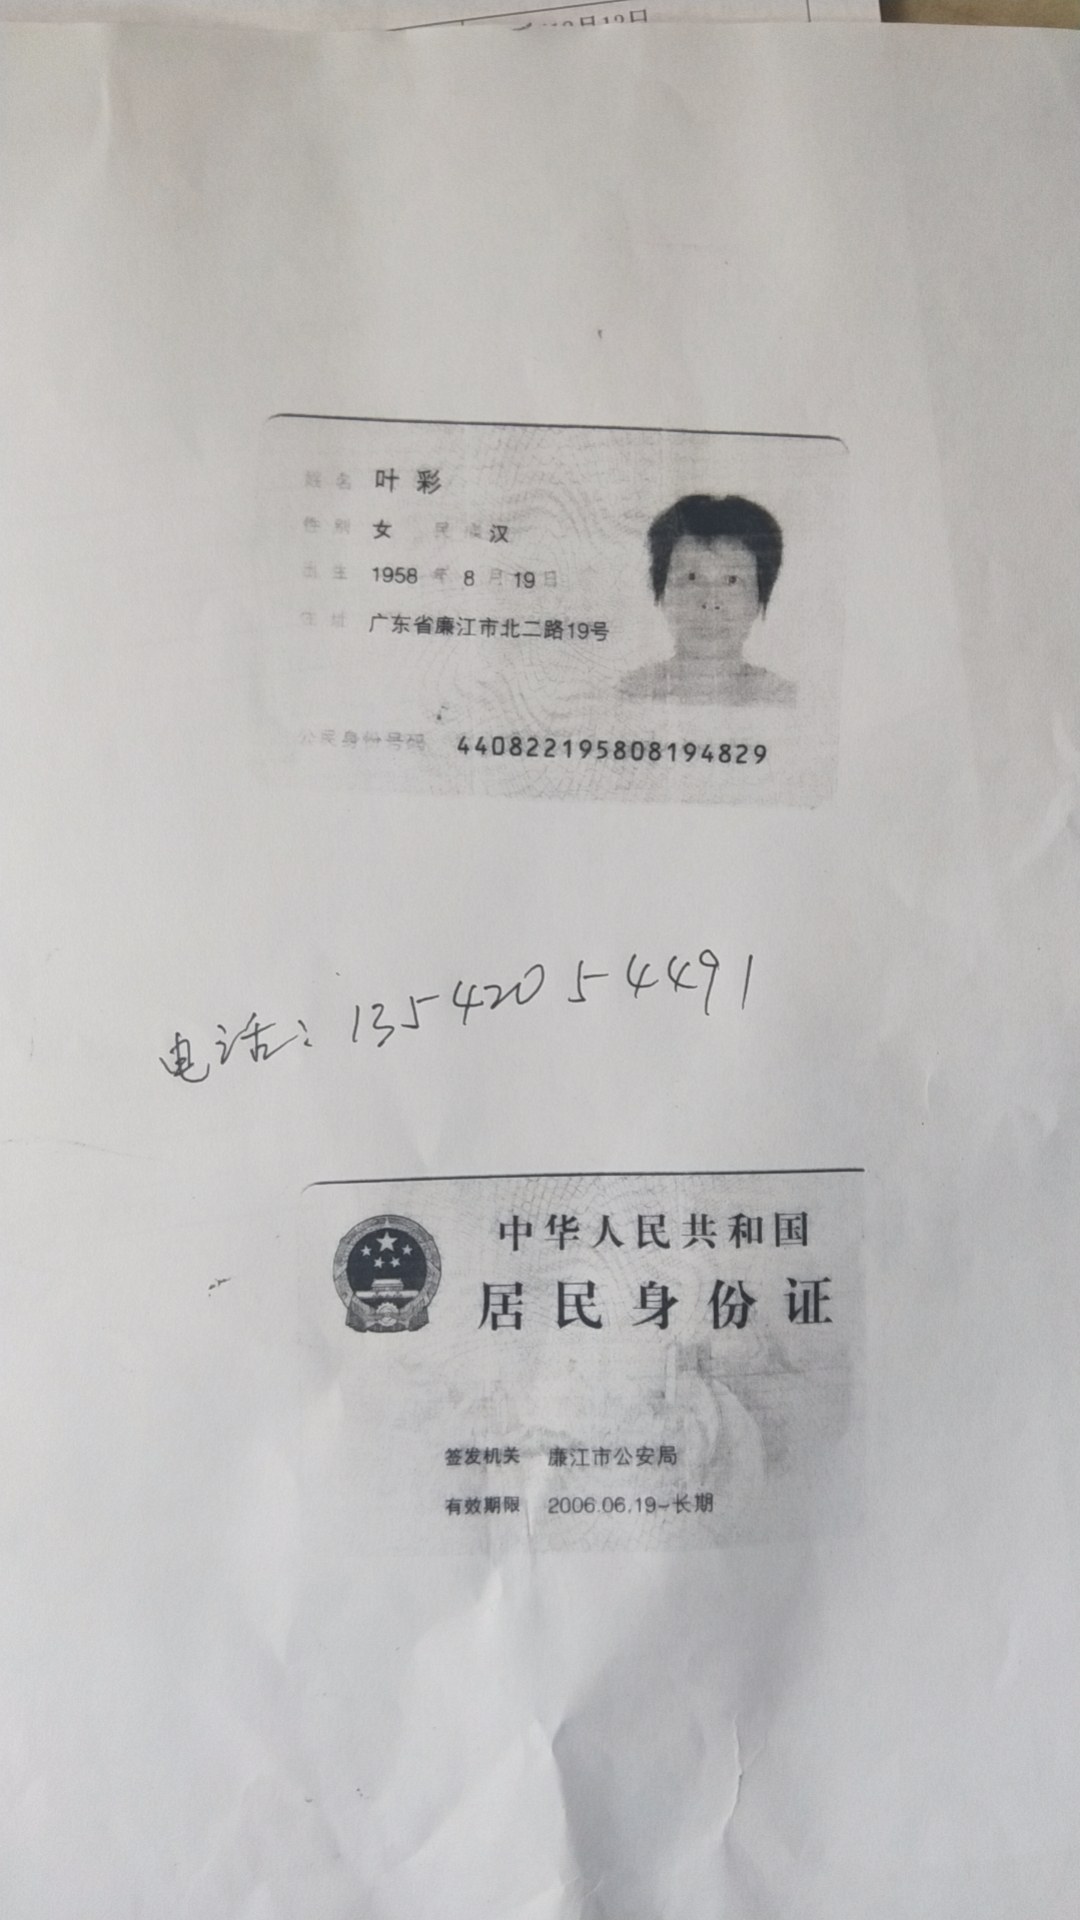 12月12日
姓名 叶彩
性别 女 民族 汉
出生 1958 年 8 月 19 日
住址 广东省廉江市北二路19号
公民身份号码 440822195808194829
电话: 13542054491
中华人民共和国
居民身份证
签发机关 廉江市公安局
有效期限 2006.06.19-长期